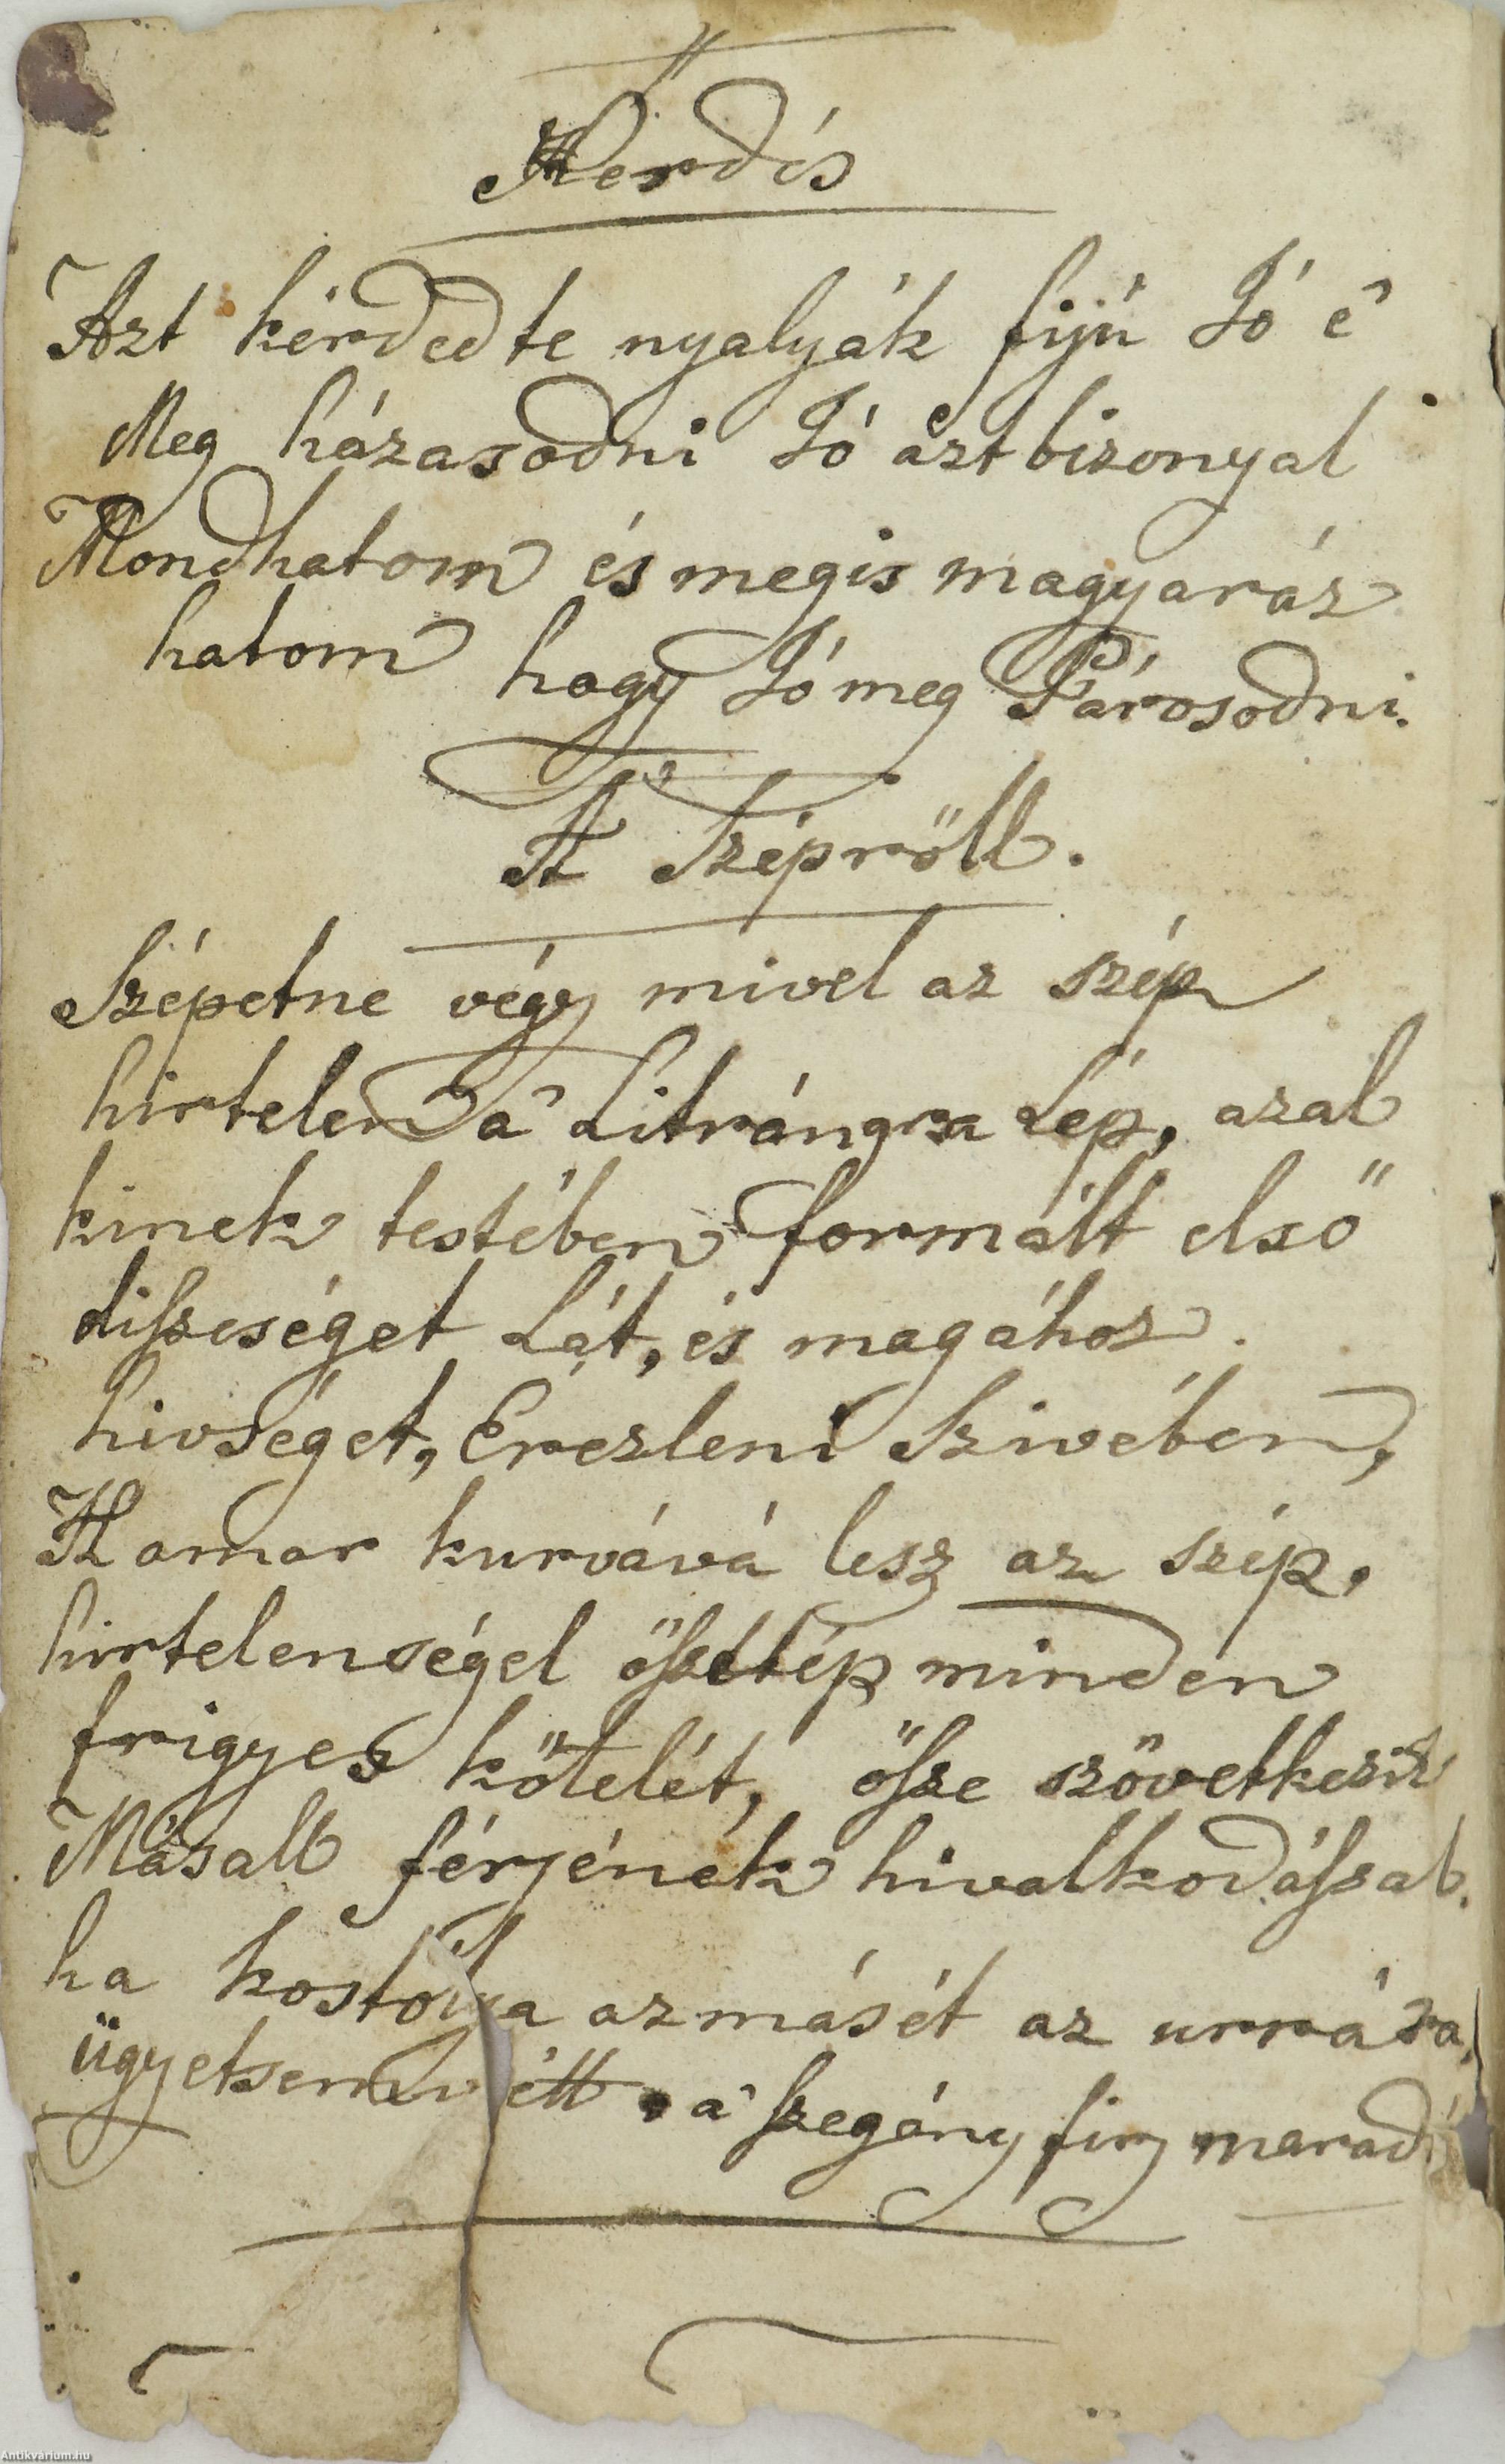 Kerdés
Azt kérdedte nyalyák fijú Jó ê
Meg házasodni Jó azt bizonyal
Mondhatom és megis magyaráz
hatom hogy Jó meg Párosodni.
A Szépröll.
Szépetne végy mivel az szép
hirtelen â Litrángra Lép, azal
kinek testében formált első
diszeséget Lát, és magához
hivséget, Erezleni Szivében,
Hamar kurvává lesz az szép,
hirtelenségel öszetép minden
frigyes kötelét, ösze szövetkezik
Másall férjének hivalkodászal.
ha kostolya azmását az urrára,
ügyetsem vétt a szegény firj maradi
Antikvárium.hu